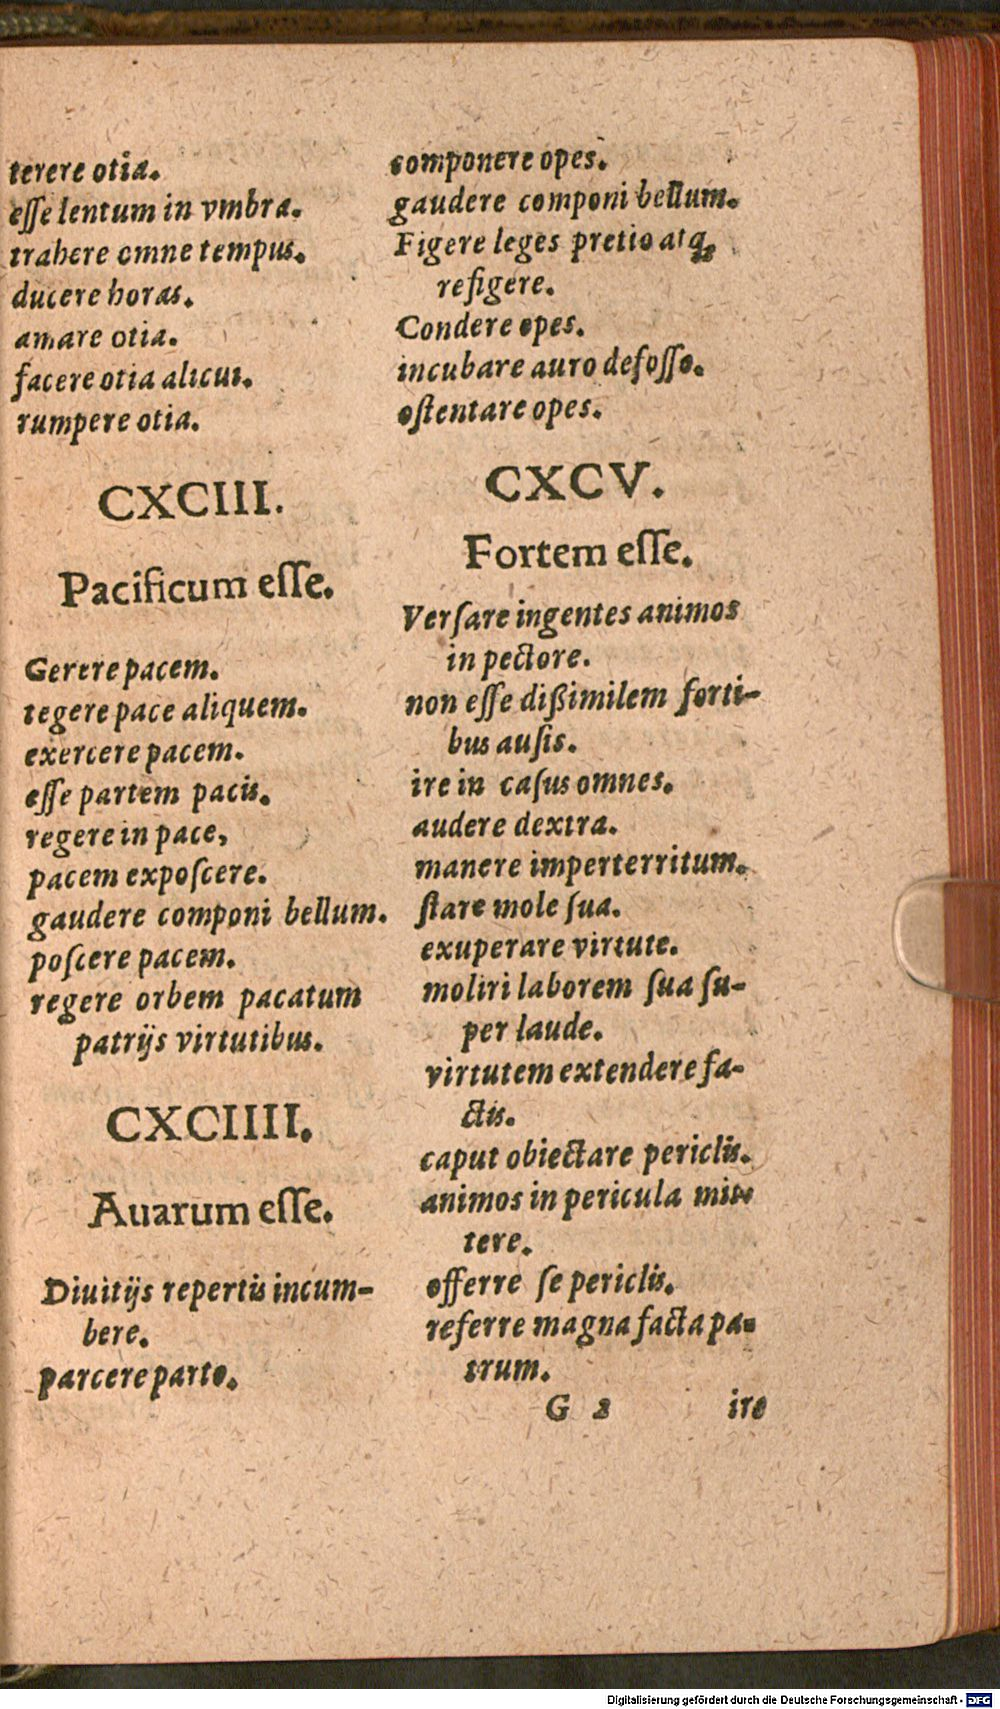 terere otia.
eſſe lentum in vmbra.
trahere omne tempus.
ducere horas.
amare otia.
facere otia alicui.
rumpere otia.
CXCIII.
Pacificum eſſe.
Gerere pacem.
tegere pace aliquem.
exercere pacem.
eſſe partem pacis.
regere in pace,
pacem expoſcere.
gaudere componi bellum.
poſcere pacem.
regere orbem pacatum
patrijs virtutibus.
CXCIIII.
Auarum eſſe.
Diuitijs repertis incum-
bere.
parcere parto.
componere opes.
gaudere componi bellum.
Figere leges pretio atq;
refigere.
Condere opes.
incubare auro defoſſo.
oſtentare opes.
CXCV.
Fortem eſſe.
Verſare ingentes animos
in pectore.
non eſſe dißimilem forti-
bus auſis.
ire in caſus omnes.
audere dextra.
manere imperterritum.
ſtare mole ſua.
exuperare virtute.
moliri laborem ſua ſu-
per laude.
virtutem extendere fa-
ctis.
caput obiectare periclis.
animos in pericula mit-
tere.
offerre ſe periclis.
referre magna facta pa-
trum.
G 2 ire
Digitalisierung gefördert durch die Deutsche Forschungsgemeinschaft - DFG